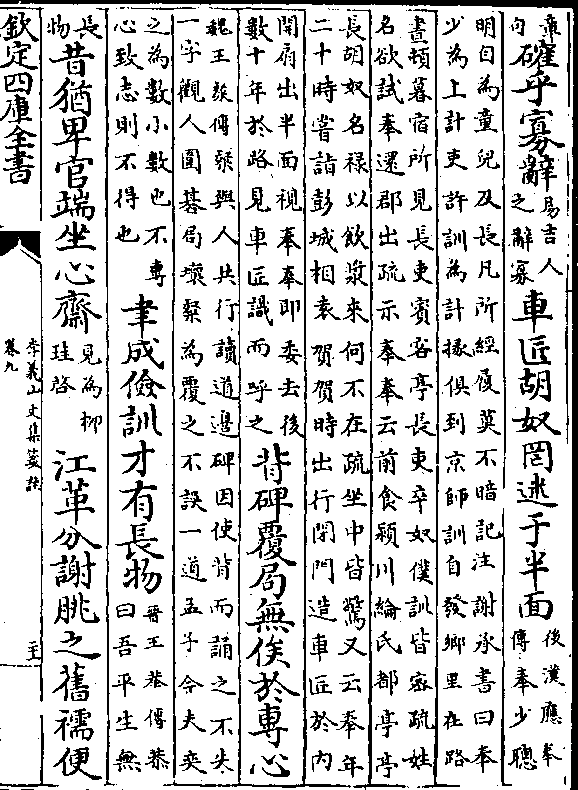 章
向
確乎寡辭
易吉人
之辭寡
車匠胡奴罔迷于半面
後漢應奉
傳奉少聰
明自為童兒及長凡所經履莫不暗記注謝承書曰奉
少為上計吏許訓為計掾俱到京師訓自發鄉里在路
晝頓暮宿所見長吏賓客亭長吏卒奴僕訓皆密疏姓
名欲試奉還郡出疏示奉奉云前食潁川綸氏都亭亭
長胡奴名祿以飲漿來何不在疏坐中皆驚又云奉年
二十時嘗詣彭城相袁賀賀時出行閉門造車匠於內
開扇出半面視奉奉即委去後
數十年於路見車匠識而呼之
背碑覆局無俟於專心
魏王粲傳粲與人共行讀道邊碑因使背而誦之不失
一字觀人圍碁局壞粲為覆之不誤一道孟子今夫奕
之為數小數也不專
心致志則不得也
聿成儉訓才有長物
晉王恭傳恭
曰吾平生無
長
物
昔猶卑官端坐心齋
見為柳
珪啓
江革分謝朓之舊襦便
欽定四庫全書
李義山文集箋註
卷九